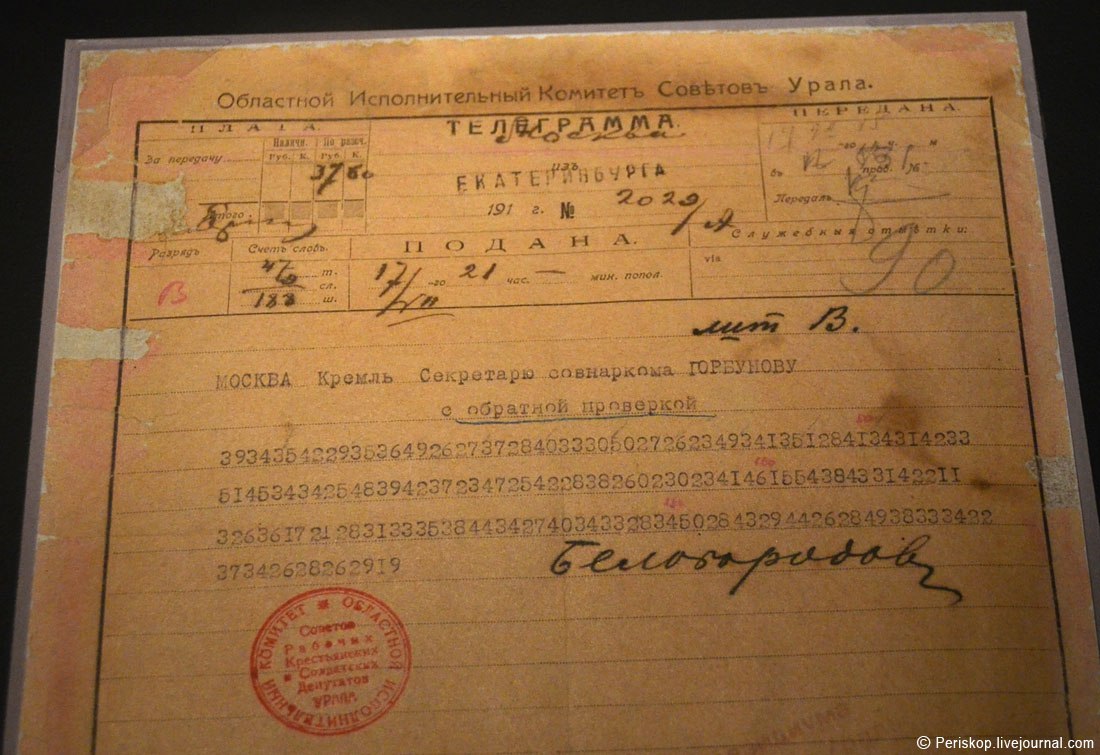 Областной Исполнительный Комитетъ Совѣтовъ Урала.
ПЛАТА.
Наличн. По разсч.
Руб. К. Руб. К.
За передачу
37 80
Итого
ТЕЛЕГРАММА.
Москва
изъ
ЕКАТЕРИНБУРГА
191 г. № 2029/А
ПЕРЕДАНА.
-го м
въ проб. №
Передалъ
Разрядъ
В
Счетъ словъ.
47 т.
сл.
188 ш.
ПОДАНА.
17/VII -го 21 час. — мин. попол.
Служебныя отмѣтки:
via
90
лит В.
МОСКВА Кремль Секретарю совнаркома ГОРБУНОВУ
с обратной проверкой
393435422935364926273728403330502726234934135128413431423 3
5145343425483942372347254228382602302341461554384331422 11
3263617212831333538443427403433283450284329442628493833 3422
37342628262919
Белобородов
ОБЛАСТНОЙ ИСПОЛНИТЕЛЬНЫЙ КОМИТЕТ
Советов
Рабочих
Крестьянских
и Солдатских
Депутатов
УРАЛА
© Periskop.livejournal.com